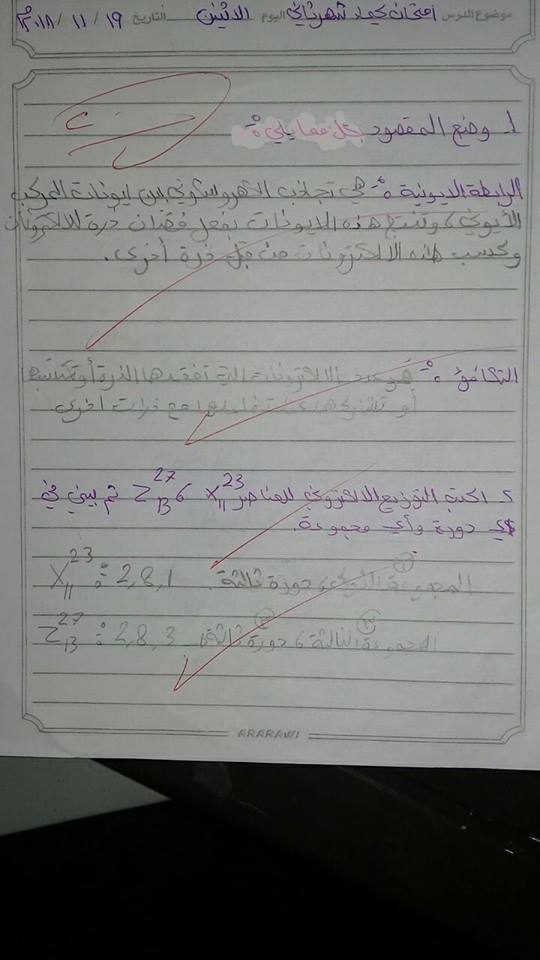 موضوع الدرس امتحان كيمياء شهر ثاني اليوم الاثنين التاريخ ١٩ / ١١ / ٢٠١٨م
1. وضح المقصود بكل مما يلي:
الرابطة الايونية :- هي تجاذب الكهروستاتي بين ايونات المركب
الأيوني، وتنتج هذه الايونات بفعل فقدان ذرة للالكترونات
وكسب هذه الالكترونات من قبل ذرة أخرى.
التكافؤ :- هو عدد الالكترونات التي تفقدها الذرة أو تكتسبها
أو تشارك بها عند تفاعلها مع ذرات اخرى
2. اكتب التوزيع الالكتروني للعناصر X₁₁²³ ، Z₁₃²⁷ ثم بيني في
أي دورة وأي مجموعة.
X₁₁²³ : 2,8,1 المجموعة الأولى، دورة ثالثة.
Z₁₃²⁷ : 2,8,3 المجموعة الثالثة، دورة ثالثة
ARARAWI